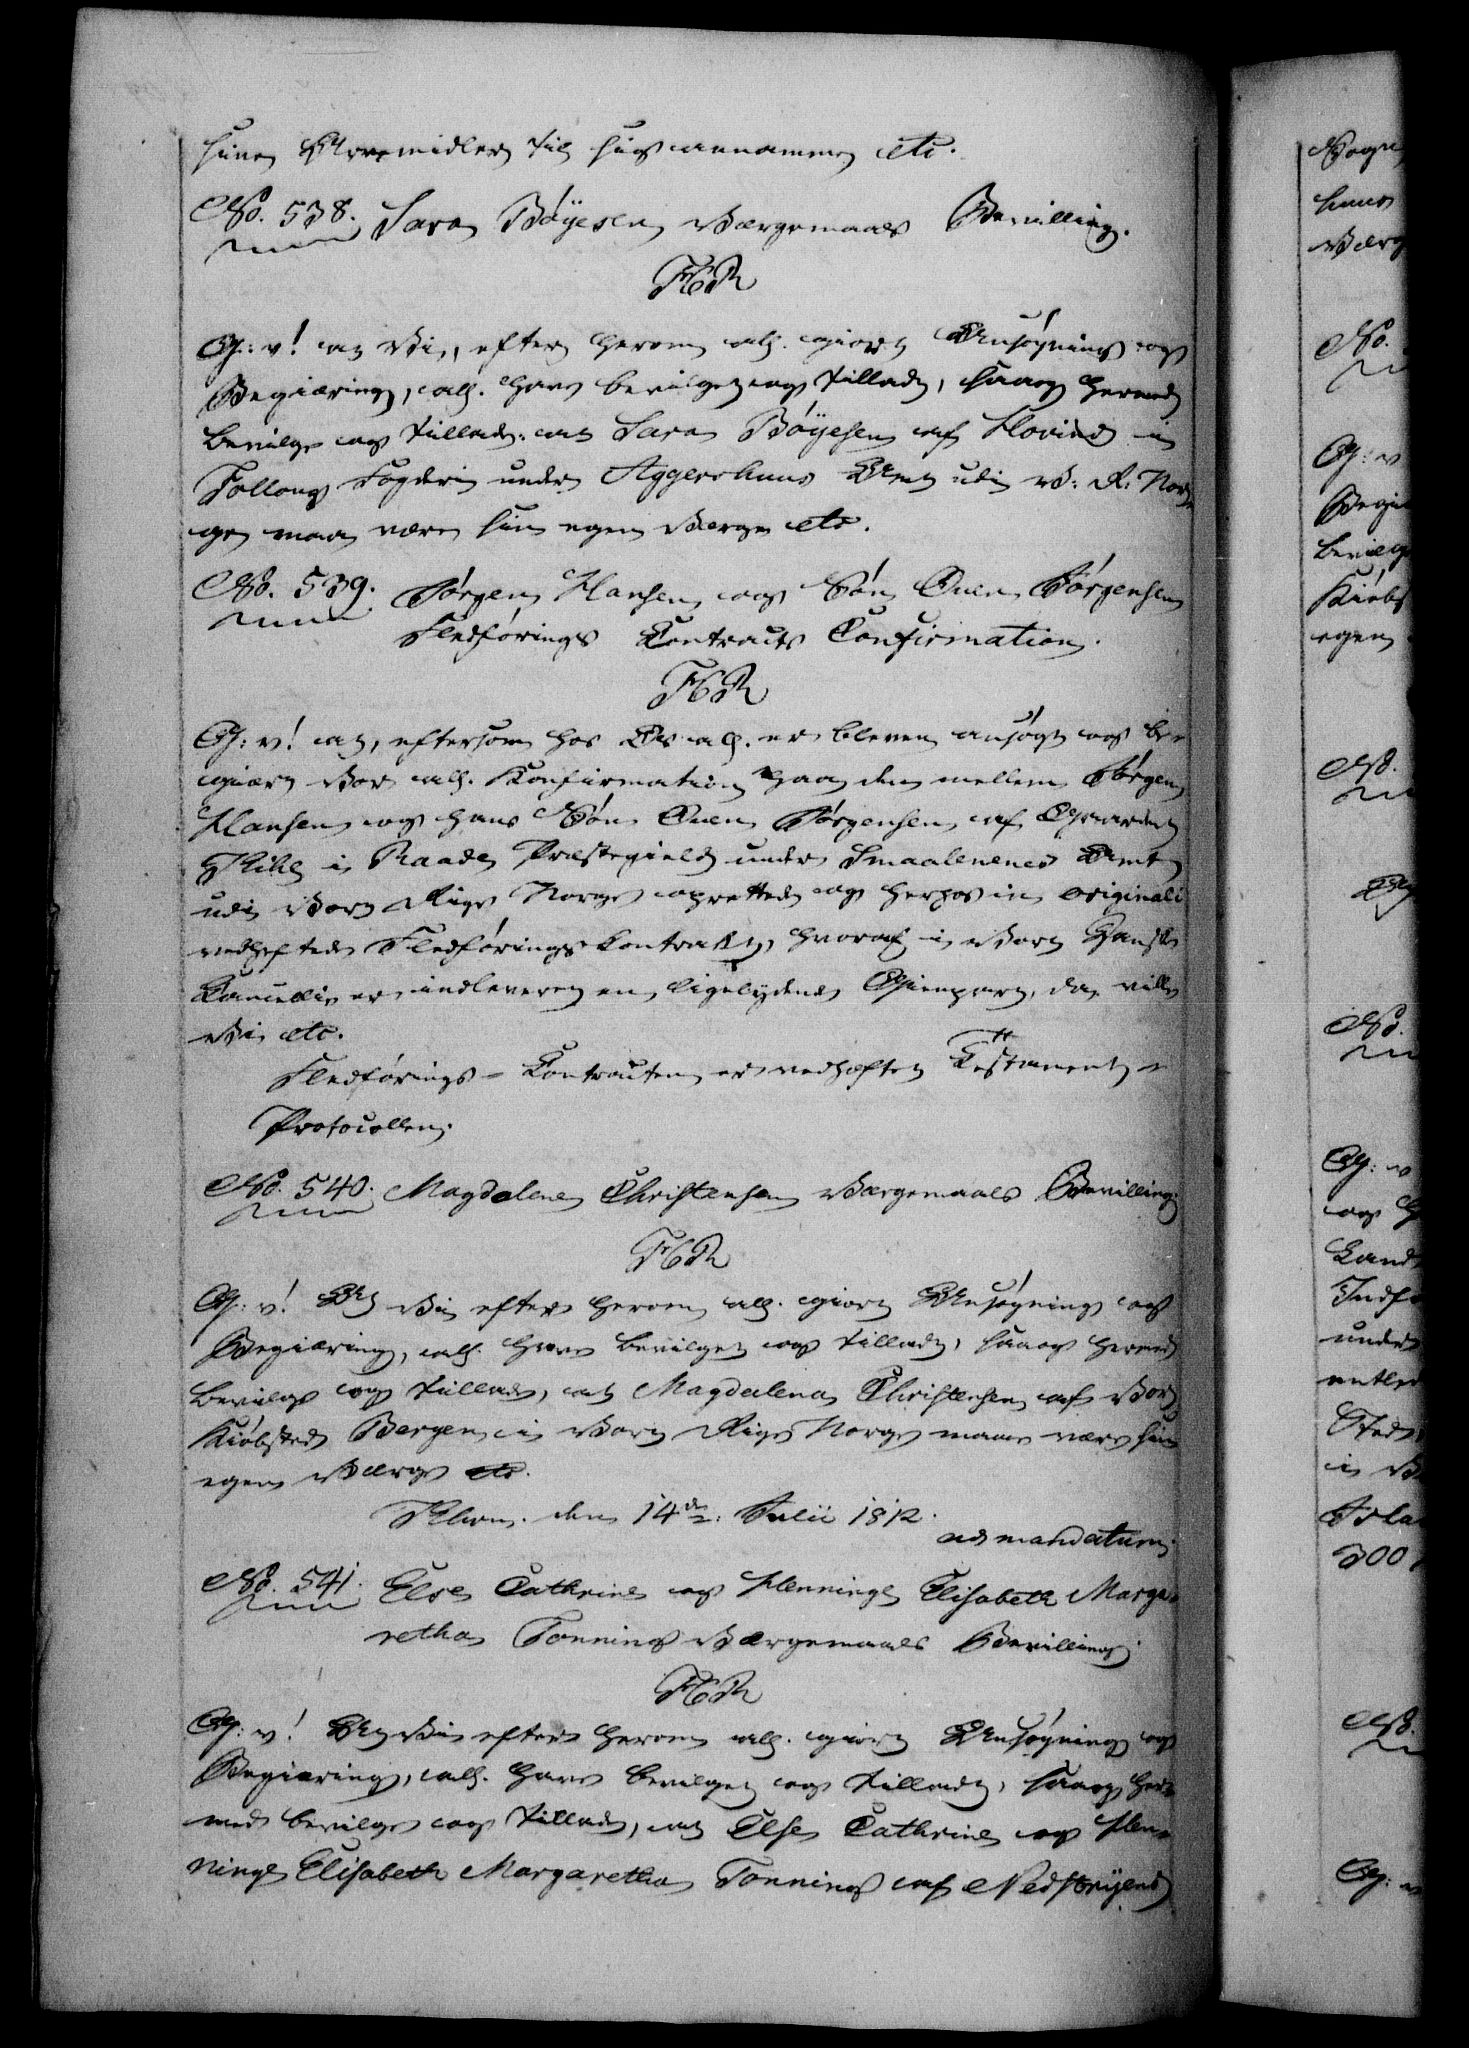 sine Arvemidler til sig annamme etc.
No. 538. Sara Böyesen Værgemaals Bevilling.
F6R
G: v! at Vi, efter herom all. giort Ansøgning og
Begiæring, all. have bevilget og tilladt, saa og hermed
bevilge og tillade, at Sara Böyesen af Horind i
Follougs Fogderie under Aggershuus Amt udi V: R: Nor-
ge maae være sin egen Værge etc.
No. 539. Jörgen Hansen og Sön Ouen Jörgensen
Fledförings Contracts Confirmation.
F6R
G: v! at, eftersom hos Os all. er bleven ansøgt og be-
giært Vor all. Konfirmation paa den mellem Jörgen
Hansen og hans Sön Ouen Jörgensen af Gaarden
i Raade Præstegield under Smaalenenes Amt
udi Vort Rige Norge oprettede og herhos in originali
vedheftede Fledförings Contract, hvoraf i Vort Danske
Cancellie er indleveret en ligelydende Gienpart, da ville
Vi etc.
Fledförings-Contracten er vedhæftet Testament-
Protocollen.
No. 540. Magdalene Christensen Værgemaals Bevilling.
F6R
G: v! At Vi efter herom all. giort Ansøgning og
Begiæring, all. have bevilget og tilladt, saa og hermed
bevilge og tillade, at Magdalena Christensen af Vor
Kiöbsted Bergen i Vort Rige Norge maae være sin
egen Værge etc.
Khvn. den 14de Julii 1812.
ad mandatum.
No. 541. Else Cathrine og Henninge Elisabeth Marga-
retha Tonning Værgemaals Bevilling.
F6R
G: v! At Vi efter herom all. giort Ansøgning og
Begiæring, all. have bevilget og tilladt, saa og her-
med bevilge og tillade, at Else Cathrine og Hen-
ninge Elisabeth Margaretha Tonning af Nedstryens